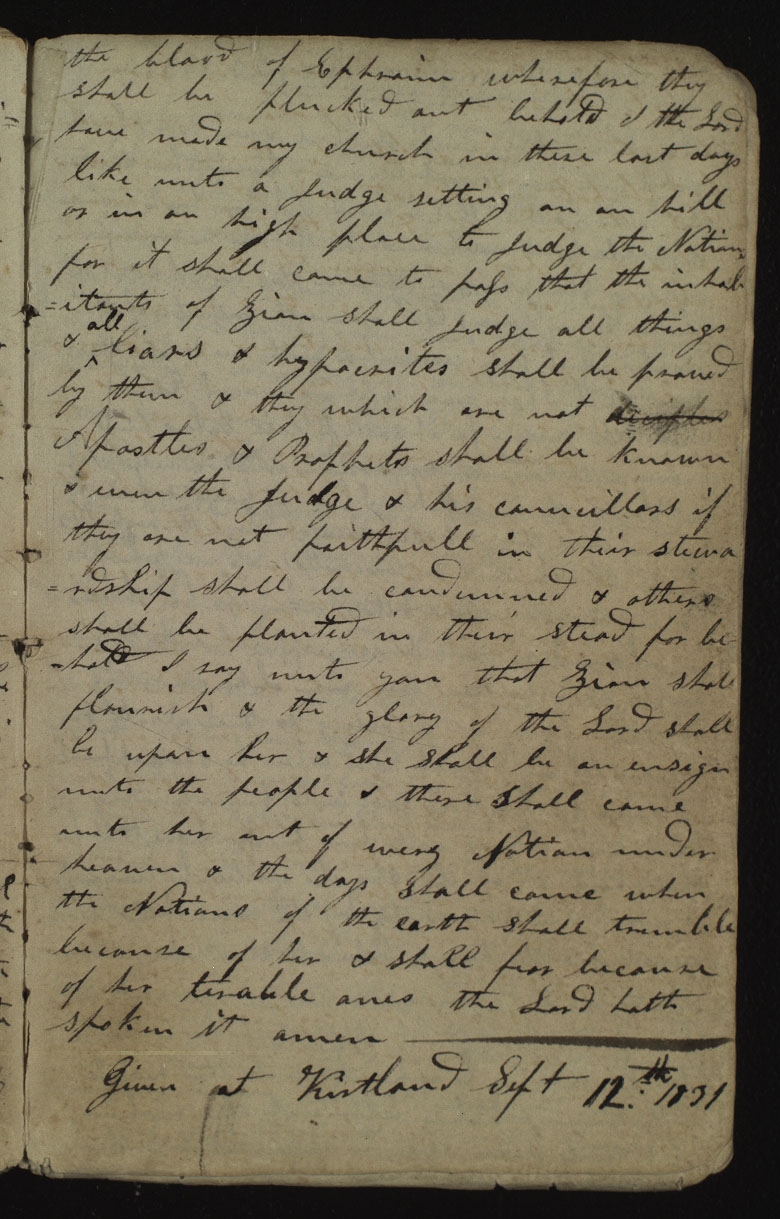 the blood of Ephraim wherefore they
shall be plucked out behold I the Lord
have made my church in these last days
like unto a Judge setting on an hill
or in an high place to Judge the Nations
for it shall come to pass that the inhab
=itants of Zion shall Judge all things
& all liars & hypocrites shall be proved
by them & they which are not deciples
Apostles & Prophets shall be known
& even the Judge & his councillors if
they are not faithfull in their stewa
=rdship shall be condemned & others
shall be planted in their stead for be
=hold I say unto you that Zion shall
flourish & the glory of the Lord shall
be upon her & she shall be an ensign
unto the people & there shall come
unto her out of every Nation under
heaven & the days shall come when
the Nations of the earth shall tremble
because of her & shall fear because
of her terable ones the Lord hath
spoken it amen
Given at Kirtland Sept 12.th 1831